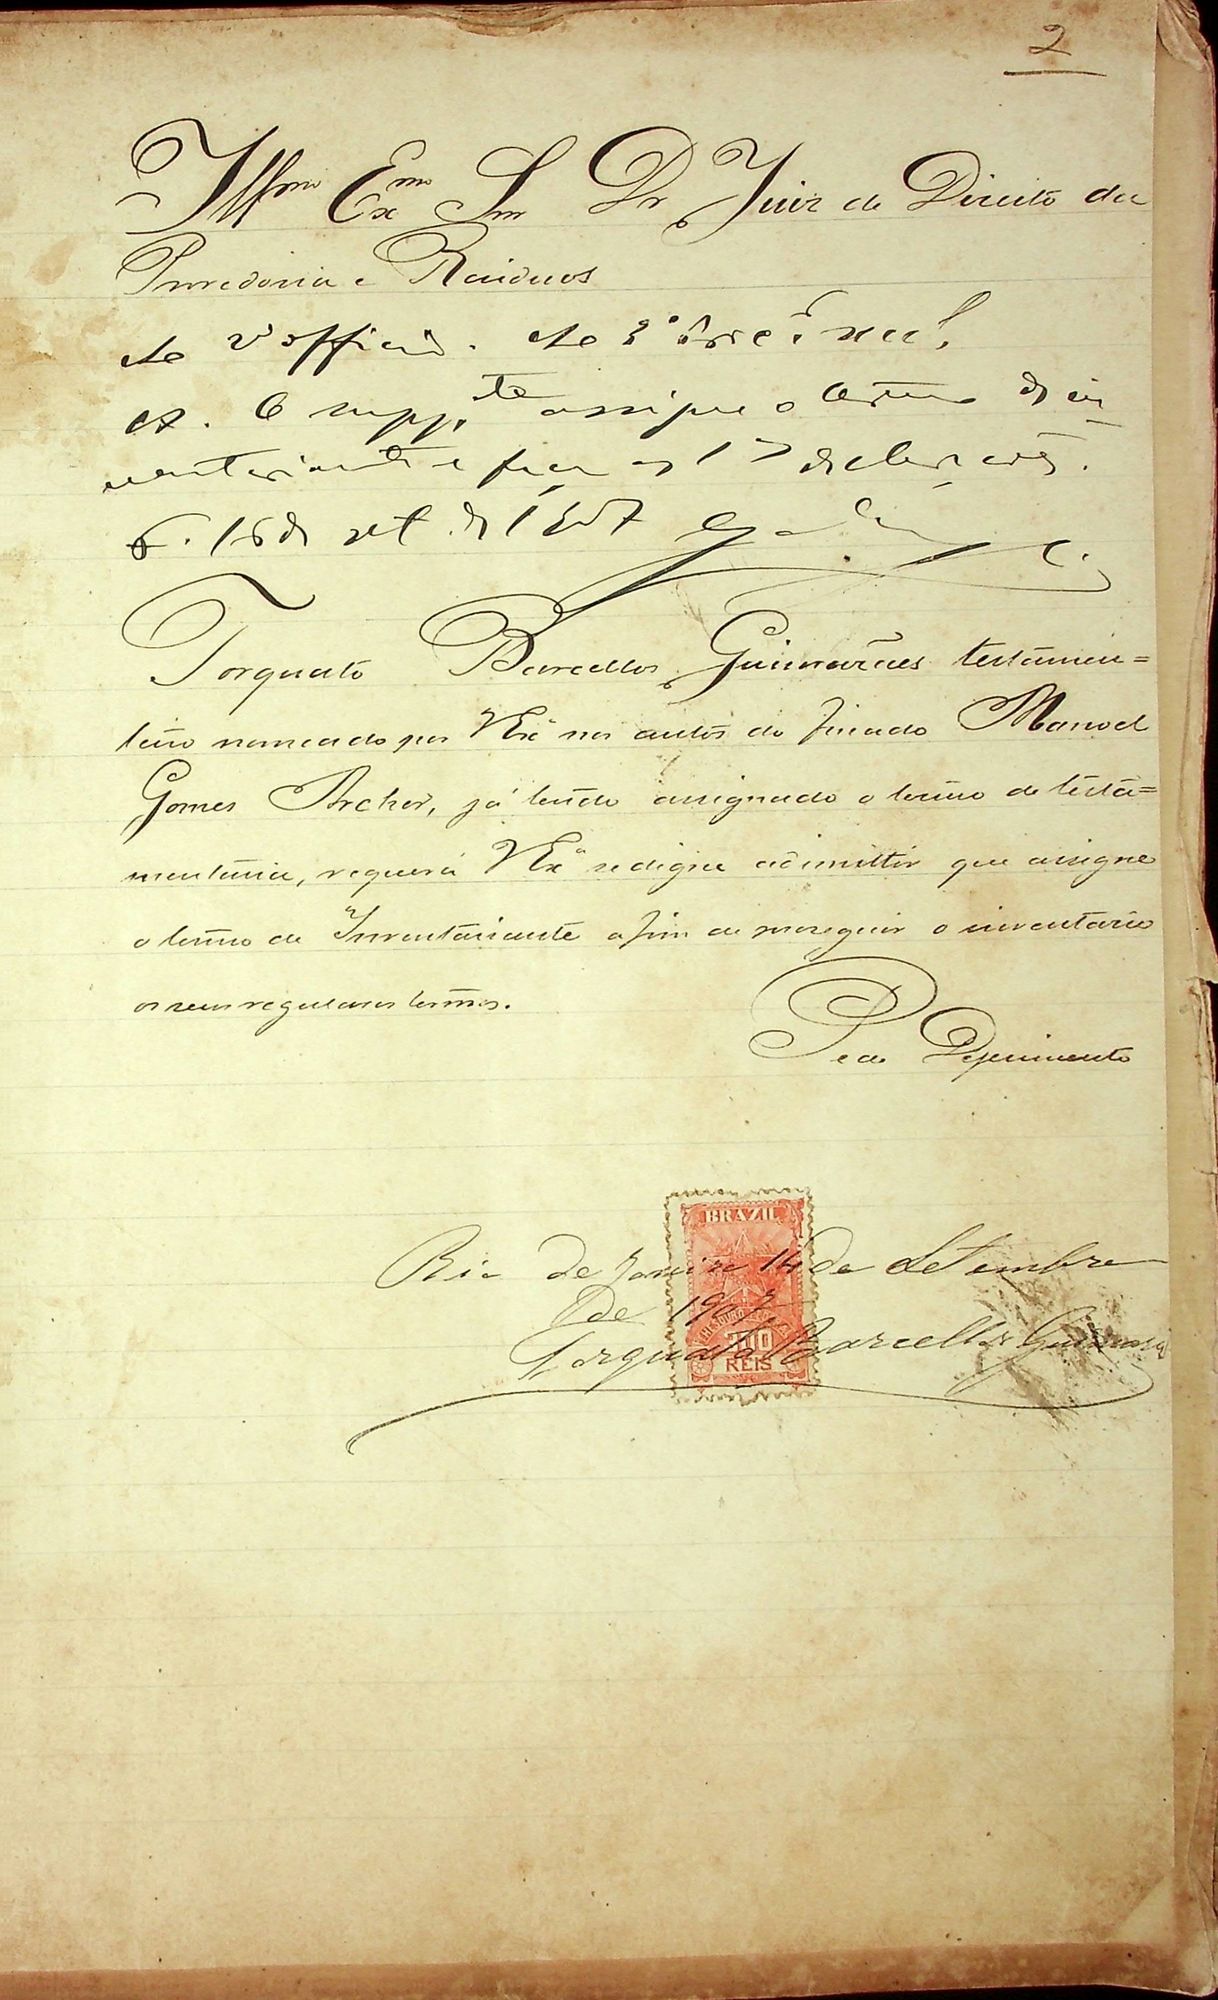 2
Illmo Exmo Snr Dr Juiz de Direito da
Provedoria e Residuos
Ao 2º officio. Ao 2º
A. O suppte assigne o termo de in-
ventariante e faça as declarações.
R. 16 de set. de 1907
Torquato Barcellos Guimarães testamen=
teiro nomeado por VExª nos autos do finado Manoel
Gomes Archer, já tendo assignado o termo de testa=
mentaria, requer á VExª se digne admittir que assigne
o termo de Inventariante afim de proseguir o inventario
os seus regulares termos.
Pede Deferimento
BRAZIL
Rio de Janeiro 14 de Setembro
de 1907
THESOURO FEDERAL
300
REIS
Torquato Barcellos Guimarães